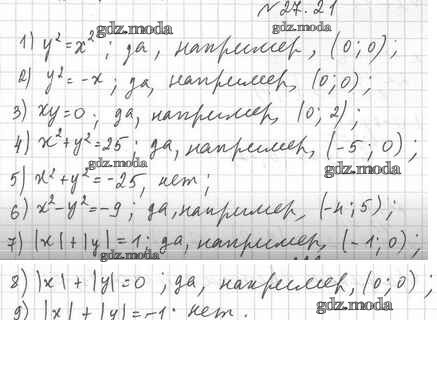 №27.21
gdz.moda gdz.moda
1) y² = x² ; да, например, (0; 0) ;
2) y² = -x ; да, например, (0; 0) ;
3) xy = 0 ; да, например, (0; 2) ;
4) x² + y² = 25 ; да, например, (-5; 0) ;
gdz.moda gdz.moda
5) x² + y² = -25, нет ;
6) x² - y² = -9 ; да, например, (-4; 5) ;
7) |x| + |y| = 1 ; да, например, (-1; 0) ;
gdz.moda
8) |x| + |y| = 0 ; да, например, (0; 0) ;
9) |x| + |y| = -1. нет.
gdz.moda